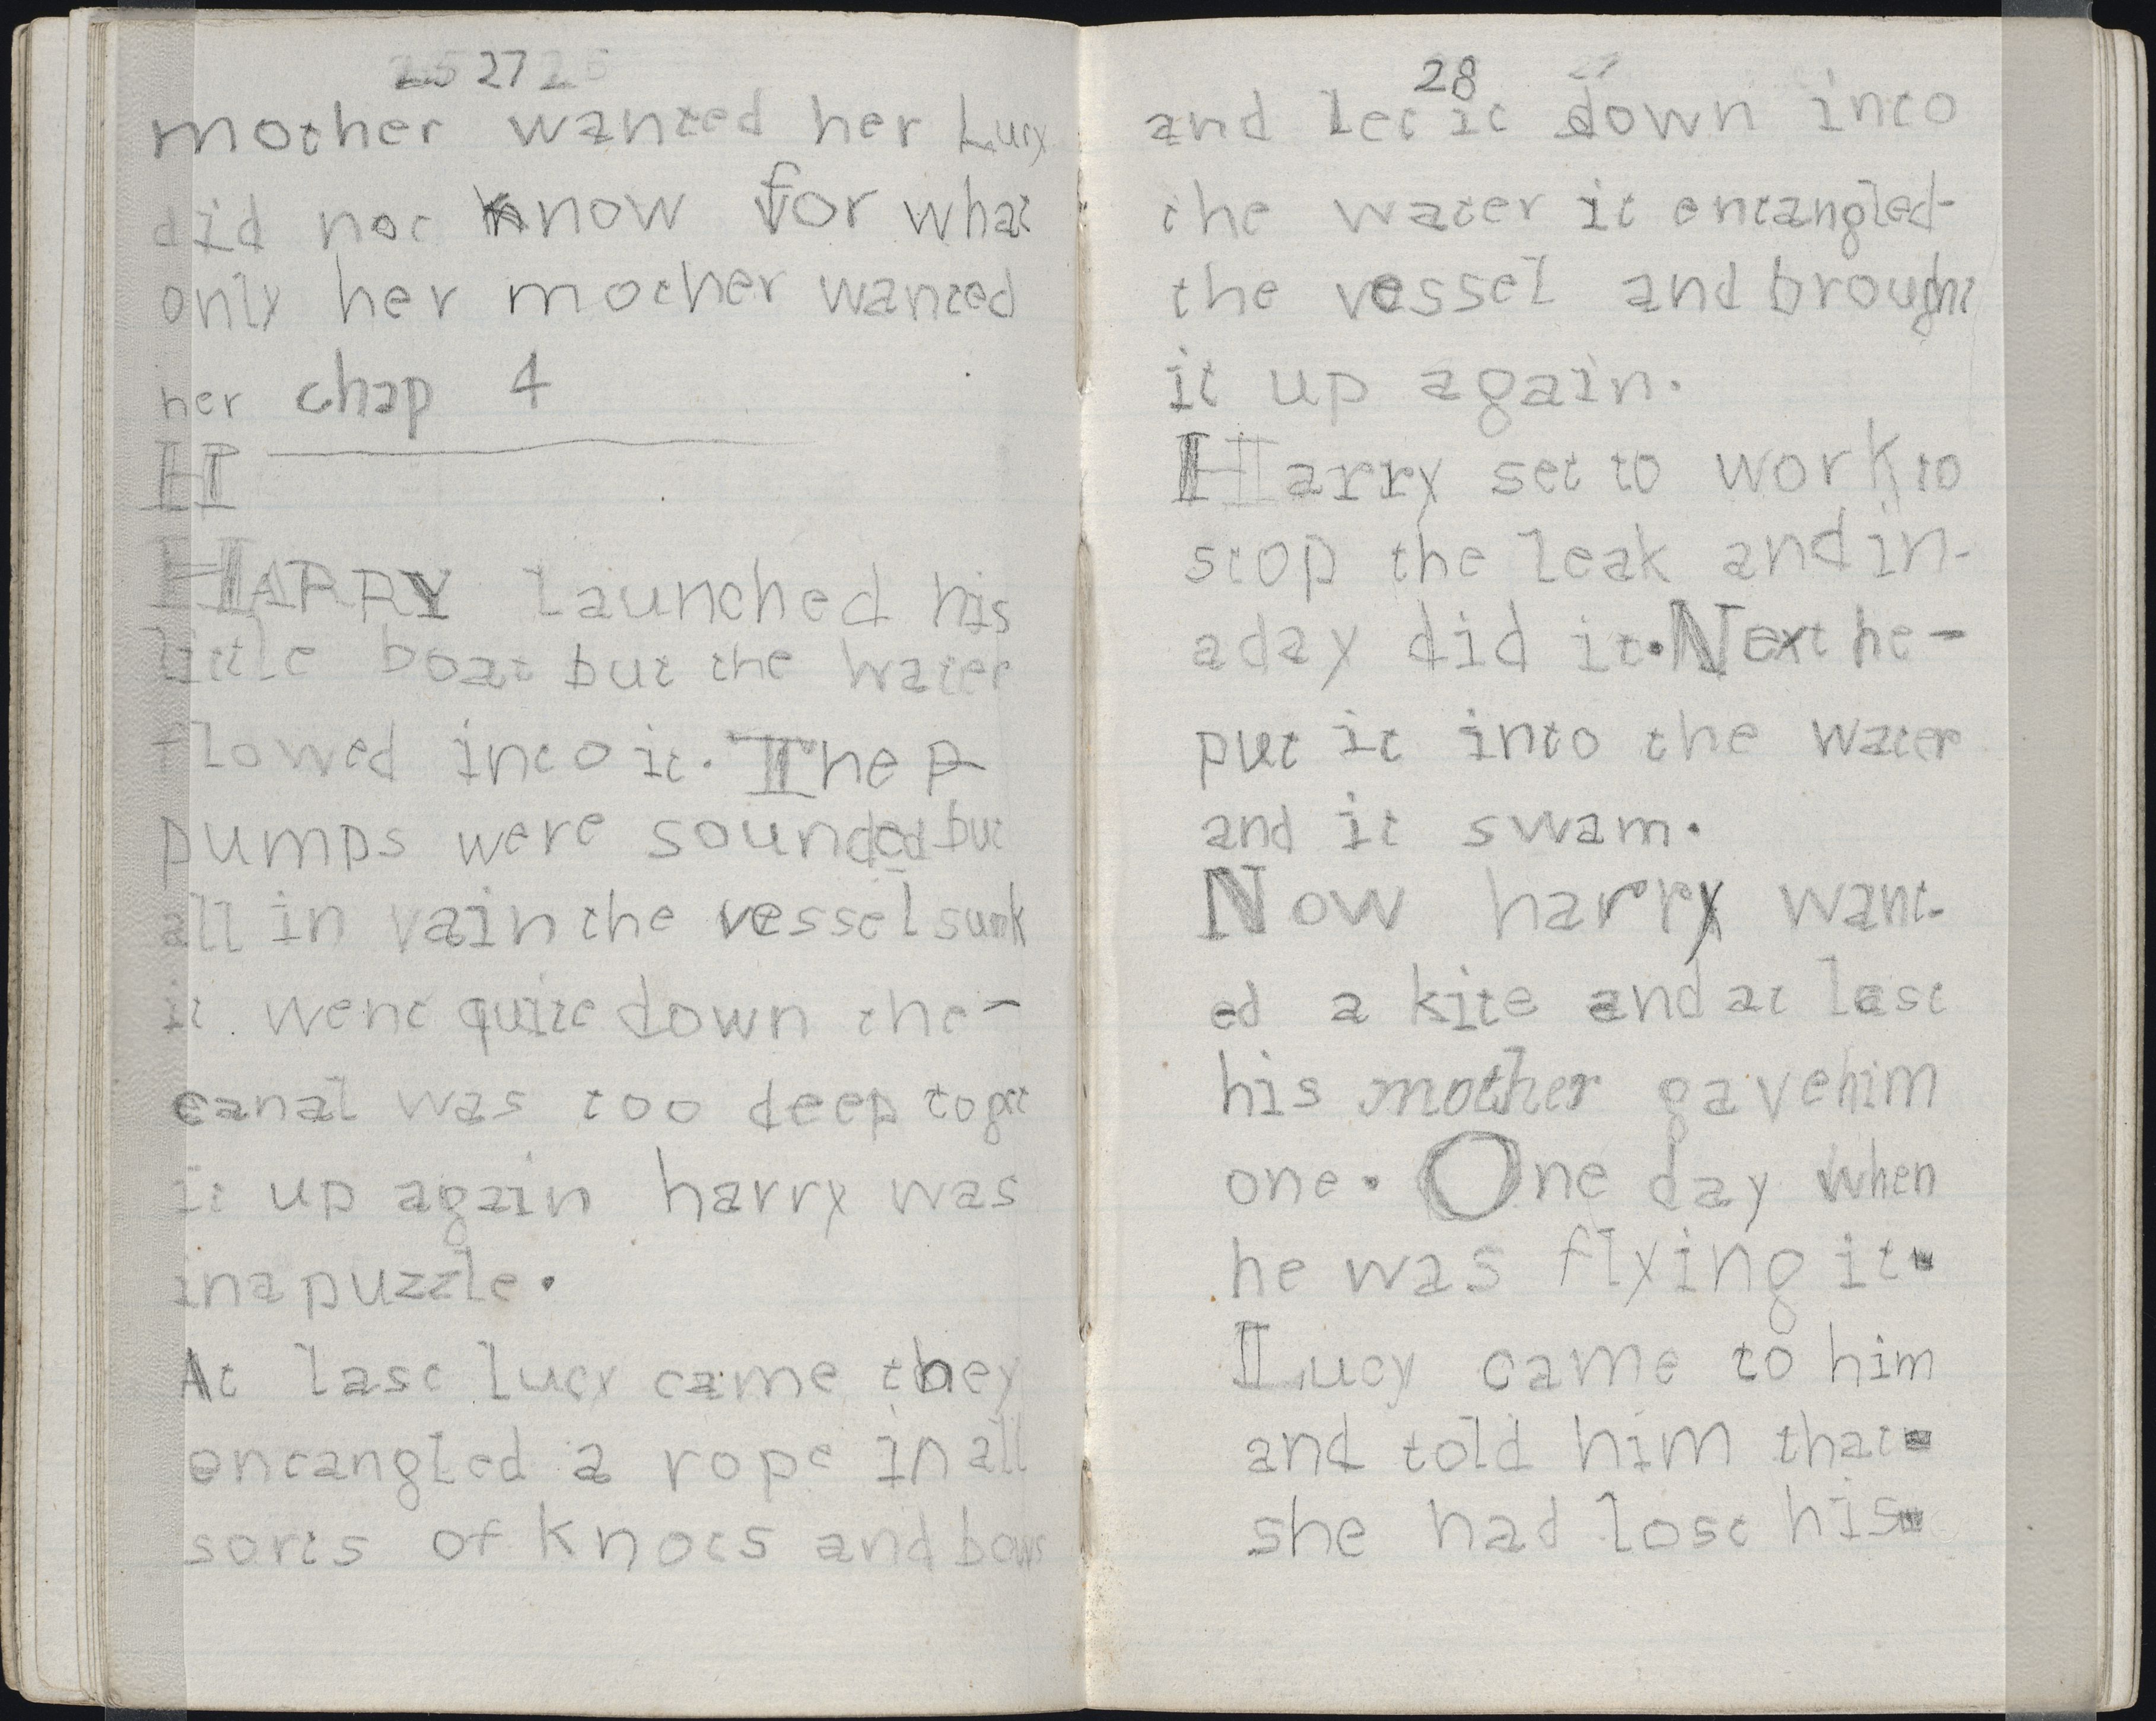 25 27 26
mother wanted her Lucy
did not know for what
only her mother wanted
her chap 4
H
HARRY launched his
little boat but the water
flowed into it. The p
pumps were sounded but
all in vain the vessel sunk
it went quite down the-
canal was too deep to get
it up again harry was
in a puzzle.
At last lucy came they
entangled a rope in all
sorts of knots and bows
28 27
and let it down into
the water it entangled-
the vessel and brought
it up again.
Harry set to work to
stop the leak and in-
a day did it. Next he-
put it into the water
and it swam.
Now harry want-
ed a kite and at last
his mother gave him
one. One day when
he was flying it-
Lucy came to him
and told him that-
she had lost his-